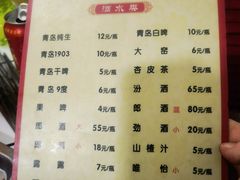 酒水类
青岛纯生 12元/瓶
青岛1903 10元/瓶
青岛干啤 5元/瓶
青岛9度 6元/瓶
果啤 4元/瓶
郎酒 大 55元/瓶
郎酒 小 18元/瓶
露露 7元/瓶
青岛白啤 10元/瓶
大窑 6元/瓶
杏皮茶 5元/瓶
汾酒 65元/瓶
郎酒 80元/瓶
劲酒 小 20元/瓶
山楂汁 5元/瓶
唯怡 小 5元/瓶